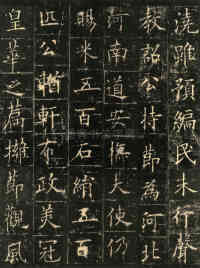 澆雖預編民未行聲
教詔公持節爲河北
河南道安撫大使仍
賜米五百石絹五百
匹公輶軒布政美冠
皇華之篇擁節觀風